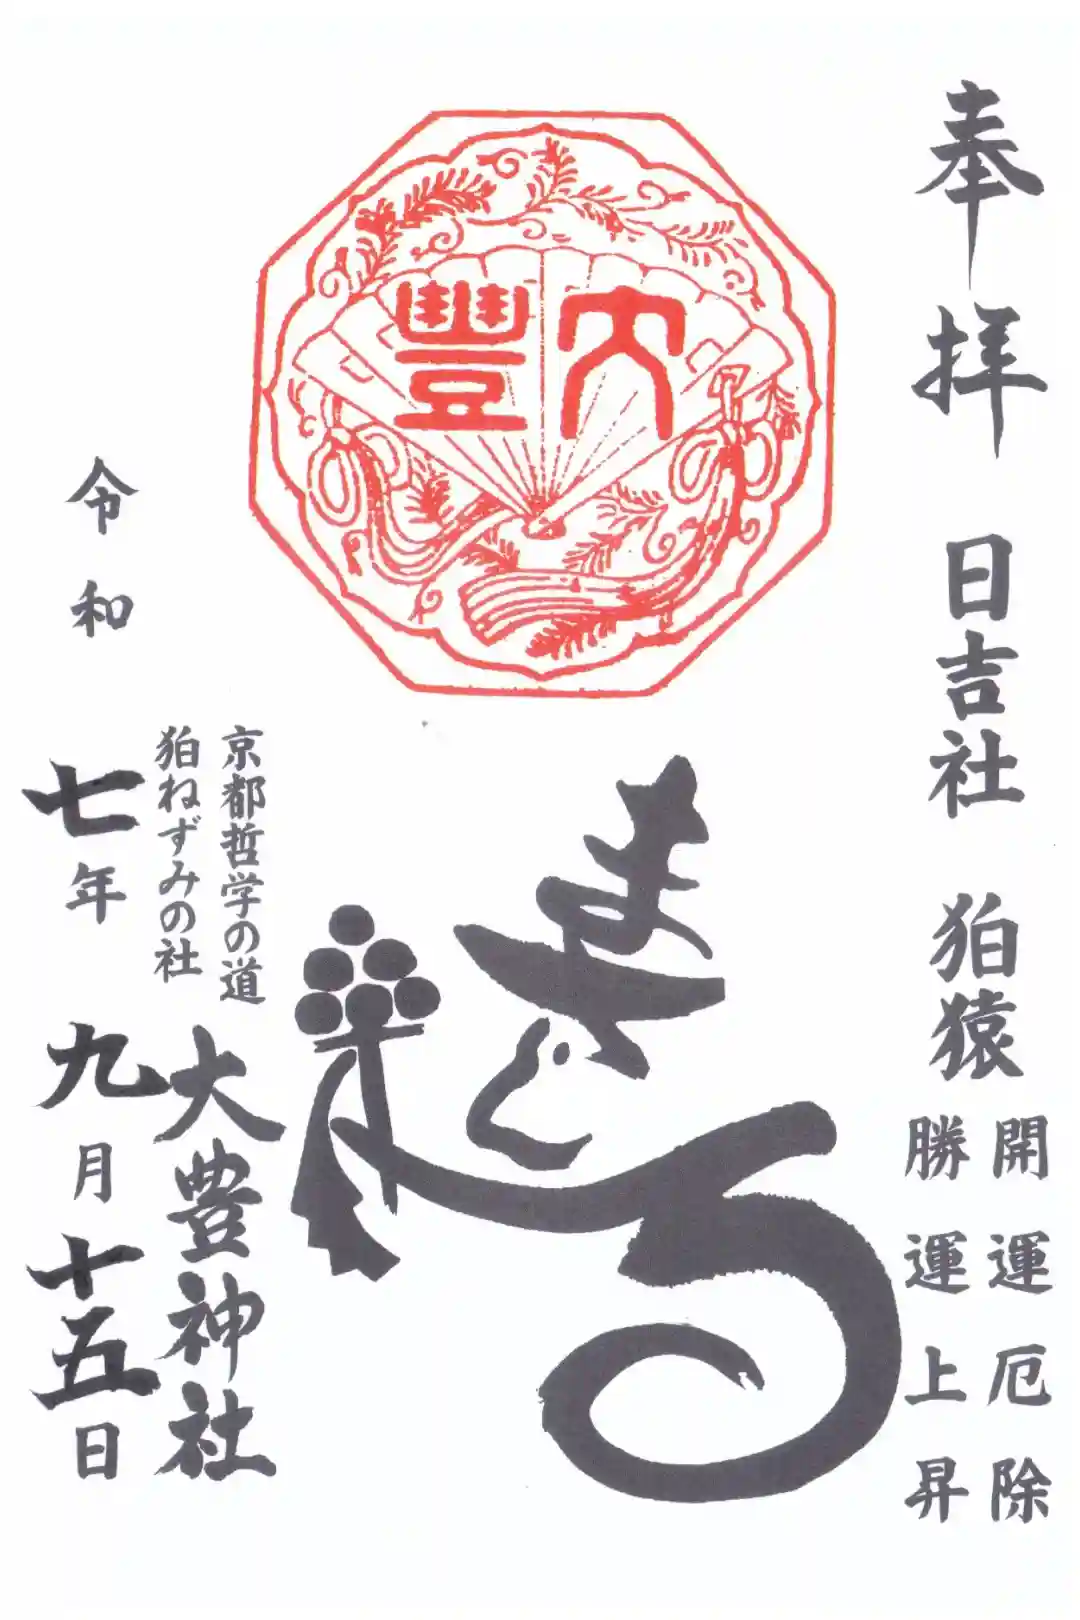 奉拝 日吉社 狛猿
開運厄除
勝運上昇
大豐
まさる
京都哲学の道
狛ねずみの社
大豊神社
令和七年九月十五日